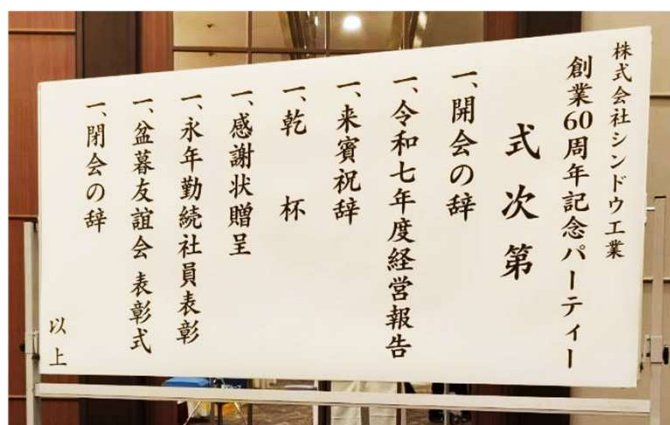 株式会社シンドウ工業
創業60周年記念パーティー
式次第
一、開会の辞
一、令和七年度経営報告
一、来賓祝辞
一、乾　杯
一、感謝状贈呈
一、永年勤続社員表彰
一、盆暮友誼会 表彰式
一、閉会の辞
以上